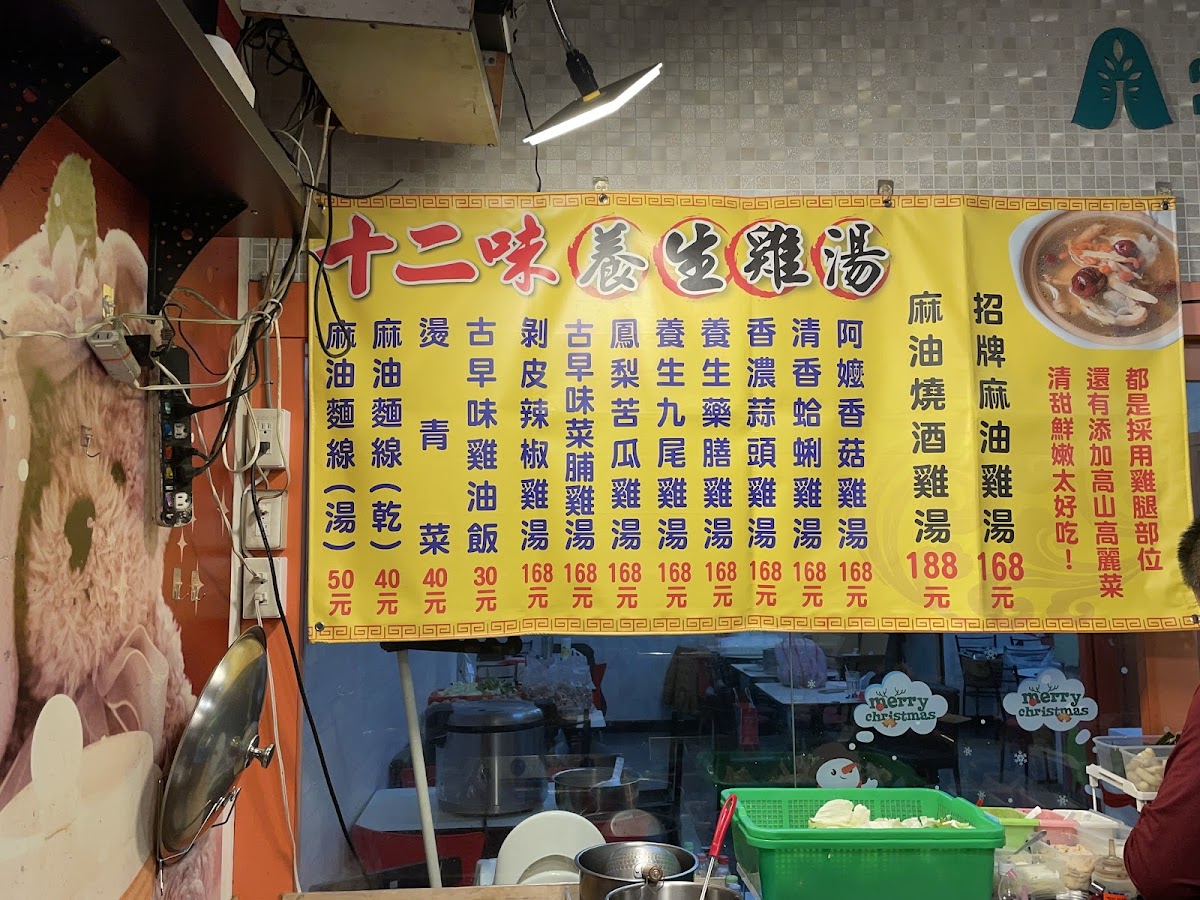 十二味養生雞湯
都是採用雞腿部位
還有添加高山高麗菜
清甜鮮嫩太好吃！
招牌麻油雞湯 168元
麻油燒酒雞湯 188元
阿嬤香菇雞湯 168元
清香蛤蜊雞湯 168元
香濃蒜頭雞湯 168元
養生藥膳雞湯 168元
養生九尾雞湯 168元
鳳梨苦瓜雞湯 168元
古早味菜脯雞湯 168元
剝皮辣椒雞湯 168元
古早味雞油飯 30元
燙青菜 40元
麻油麵線(乾) 40元
麻油麵線(湯) 50元
merry
christmas
merry
christmas